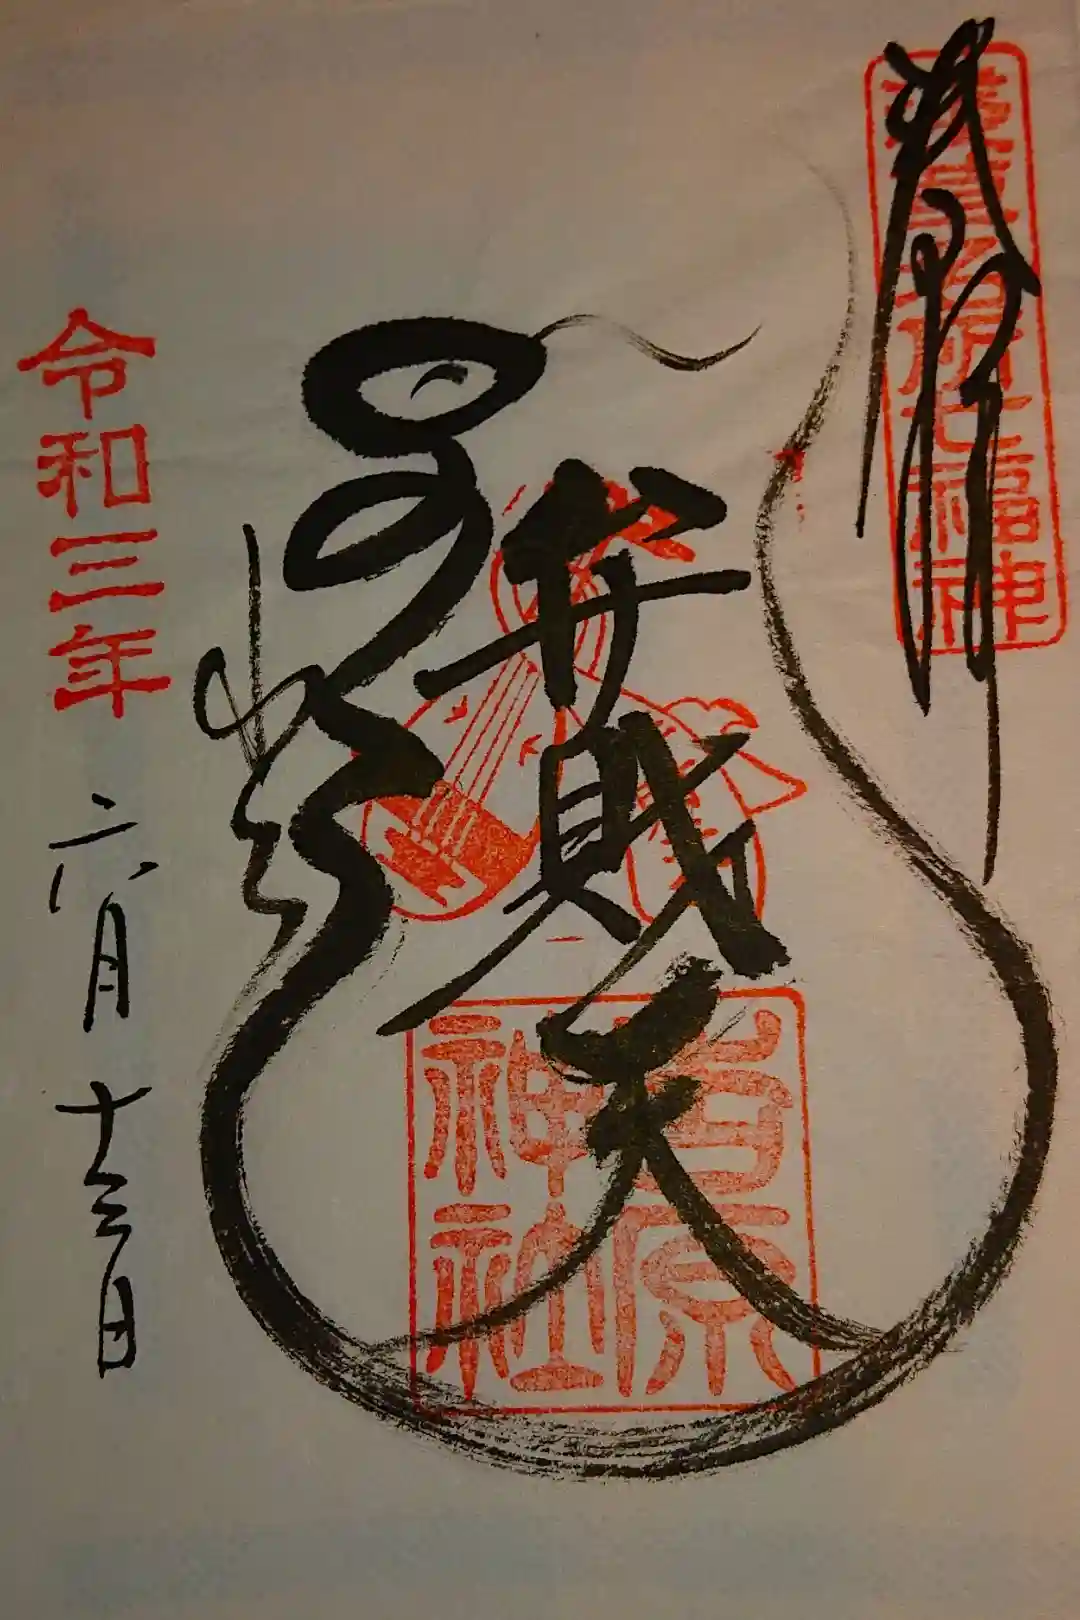 奉拝
浅草名所七福神
弁財天
吉原
神社
令和三年六月十三日